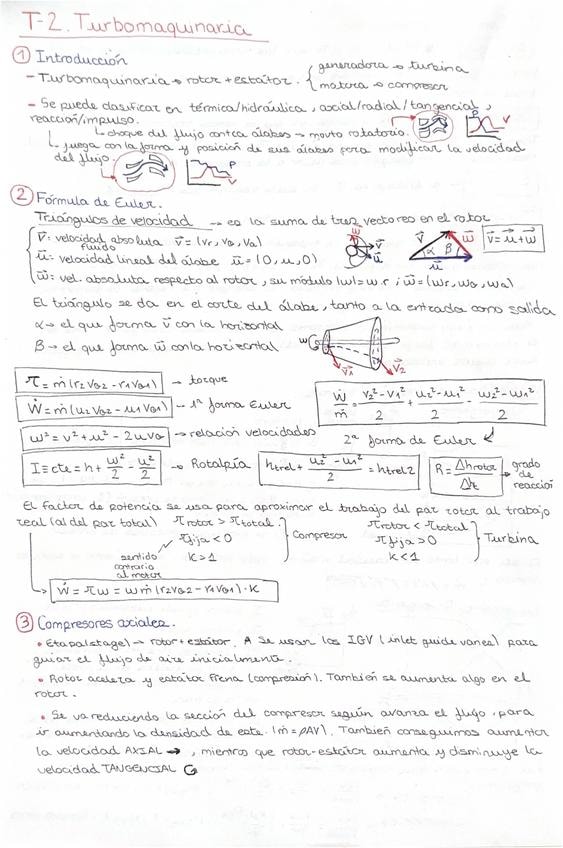 T-2. Turbomaquinaria
① Introducción
- Turbomaquinaria → rotor + estátor. { generadora → turbina
motora → compresor
- Se puede clasificar en térmica/hidráulica, axial/radial/tangencial,
reacción/impulso.
↳ choque del flujo contra álabes → movto rotatorio.
P
V
↳ juega con la forma y posición de sus álabes para modificar la velocidad
del flujo.
P
V
② Fórmula de Euler.
Triángulos de velocidad → es la suma de tres vectores en el rotor
v⃗: velocidad absoluta v⃗ = (vr, vθ, va)
fluido
u⃗: velocidad lineal del álabe u⃗ = (0, u, 0)
w⃗: vel. absoluta respecto al rotor, su módulo |w| = w·r ; w⃗ = (wr, wθ, wa)
w⃗ v⃗ u⃗
v⃗ α β w⃗ u⃗
v⃗ = u⃗ + w⃗
El triángulo se da en el corte del álabe, tanto a la entrada como salida
α → el que forma v⃗ con la horizontal
β → el que forma w⃗ con la horizontal
w v⃗1 v⃗2
τ = ṁ(r2vθ2 - r1vθ1) → torque
Ẇ = ṁ(u2vθ2 - u1vθ1) → 1ª forma Euler
Ẇ/ṁ = (v2² - v1²)/2 + (u2² - u1²)/2 - (w2² - w1²)/2
w² = v² + u² - 2uvθ → relación velocidades
2ª forma de Euler
I ≡ cte = h + w²/2 - u²/2 → Rotalpía
htrel1 + (u2² - u1²)/2 = htrel2
R = Δhrotor/Δht → grado de reacción
El factor de potencia se usa para aproximar el trabajo del par rotor al trabajo
real (al del par total) τrotor > τtotal
τfija < 0
k > 1
} Compresor
τrotor < τtotal
τfija > 0
k < 1
} Turbina
sentido
contrario
al motor
Ẇ = τw = wṁ(r2vθ2 - r1vθ1)·k
③ Compresores axiales.
• Etapa (stage) → rotor + estátor. A Se usan los IGV (inlet guide vanes) para
guiar el flujo de aire inicialmente.
• Rotor acelera y estátor frena (compresión). También se aumenta algo en el
rotor.
• Se va reduciendo la sección del compresor según avanza el flujo, para
ir aumentando la densidad de este. (ṁ = ρAV). También conseguimos aumentar
la velocidad AXIAL →, mientras que rotor-estátor aumenta y disminuye la
velocidad TANGENCIAL